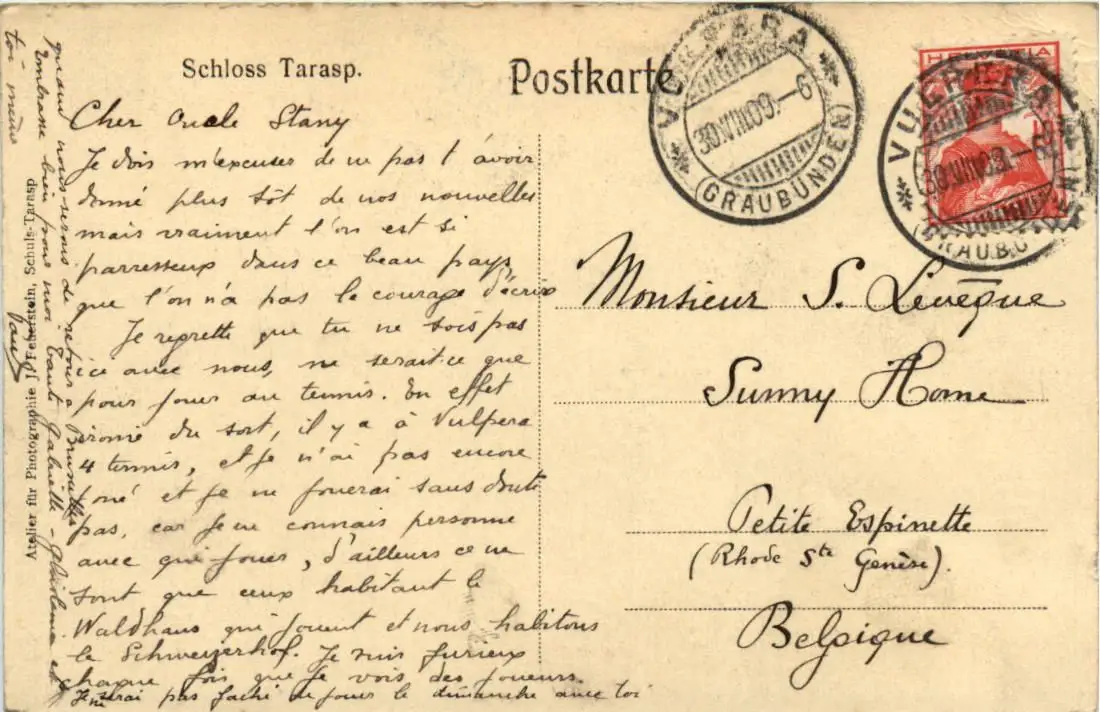 Schloss Tarasp.
Postkarte
VULPERA
30.VIII.09.-6
(GRAUBÜNDEN)
HELVETIA
VULPERA
30.VIII.09.-6
(GRAUBÜNDEN)
Cher Oncle Stany
Je dois m'excuser de ne pas t'avoir
donné plus sôt de nos nouvelles
mais vraiment l'on est si
parresseux dans ce beau pays
que l'on n'a pas le courage d'écrire
Je regrette que tu ne sois pas
ici avec nous, ne serait-ce que
pour jouer au tennis. En effet
ironie du sort, il y a à Vulpera
4 tennis, et je n'ai pas encore
joué et je ne jouerai sans doute
pas, car je ne connais personne
avec qui jouer, d'ailleurs ce ne
sont que ceux habitant le
Waldhaus qui jouent et nous habitons
le Schweizerhof. Je suis furieux
chaque fois que je vois des joueurs.
Je ne serai pas faché de jouer le dimanche avec toi
quand nous serons de retour à Bruxelles
Embrasse bien pour moi tante Gabrielle - Ghislaine et
toi même
Paul
Atelier für Photographie J. Feuerstein, Schuls-Tarasp
Monsieur S. Levêque
Sunny Home
Petite Espinette
(Rhode Ste Genèse).
Belgique